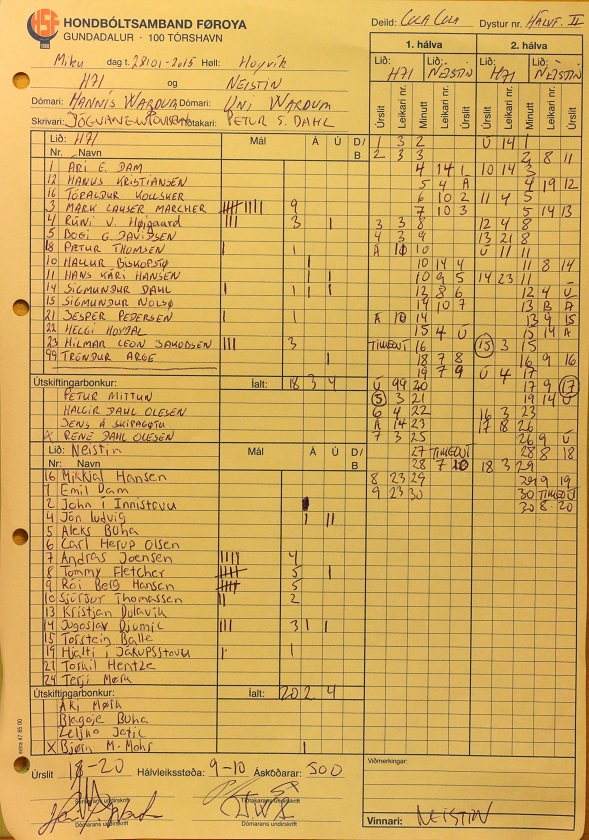 HONDBÓLTSAMBAND FØROYA
GUNDADALUR · 100 TÓRSHAVN
HSF
1980
Deild: COLA COLA Dystur nr. HÁLVF. II
Miku dag t. 28/01-2015 Høll: Hoyvík
H71 og NEISTIN
Dómari: HANNIS WARDUM Dómari: UNI WARDUM
Skrivari: Tíðtakari: PETUR S. DAHL
1. hálva 2. hálva
Lið: H71 Lið: NEISTIN Lið: H71 Lið: NEISTIN
Úrslit Leikari nr. Minutt Leikari nr. Úrslit Úrslit Leikari nr. Minutt Leikari nr. Úrslit
Lið: H71 Mál Á Ú D/B
Nr. Navn
1 ÁRI E. DAM
12 HANUS KRISTIANSEN
16 TÓRALDUR KOLLSKER
3 MARK LAUSER MARCHER 9
4 RÚNI V. Højgaard 3
5 BOGI G DAVIDSEN
8 PÆTUR THOMSEN
10 HALLUR BISKOPSTØ
11 HANS KÁRI HANSEN
14 SIGMUNDUR DAHL 1
15 SIGMUNDUR NOLSØ
21 JESPER PEDERSEN 1
22 HELGI HOYDAL
23 HILMAR LEON JAKOBSEN 3
99 TRÓNDUR ARGE
Útskiftingarbonkur: Íalt: 18 3 4
PETUR MITTUN
HALGIR DAHL OLESEN
JENS Á SKIPAGØTU
X RENE DAHL OLESEN
Lið: Neistin Mál Á Ú D/B
Nr: Navn
16 Mikkjal Hansen
1 Emil Dam
2 John í Innistovu
4 Jón Ludvig
5 Aleks Buha
6 Carl Herup Olsen
7 Andras Joensen 4
8 Tommy Fletcher 5
9 Rói Berg Hansen 5
10 Sjúrður Thomassen 2
13 Kristjan Dulavik
14 Jugoslav Djumic 3
15 Torstein Balle
19 Hjalti í Jákupsstovu 1
21 Torkil Hentze
24 Terji Mørk
Útskiftingarbonkur: Íalt: 20 2 4
Áki Mørk
Blagoje Buha
Zeljko Jotic
X Bjørn M. Mohr
1 3 2
2 3 3
4 14 1
5 4 A
6 10 2
7 10 3
3 3 8
4 3 9
A 10 10
10 14 4
10 9 5
12 8 6
14 10 7
A 10 14
15 4 Ú
TIMEOUT 16
18 7 8
19 7 9
Ú 99 20
5 3 21
6 4 22
A 14 23
7 3 25
27 TIMEOUT
28 7 10
8 23 29
9 23 30
Ú 14 1
2 8 11
10 14 3
4 19 12
11 4 5
5 14 13
12 4 8
13 21 8
Ú 11 11
11 8 14
14 23 11
12 4 Ú
13 B A
13 9 15
15 14 A
15 3 15
16 9 16
Ú 4 17
17 9 17
19 14 Ú
16 3 23
17 18 26
26 9 Ú
28 8 18
18 3 29
29 9 19
30 TIMEOUT
30 8 20
Úrslit 18-20 Hálvleiksstøða: 9-10 Áskoðarar: 500
Viðmerkingar:
Skrivarans undirskrift Tíðtakarans undirskrift
Dómarans undirskrift Dómarans undirskrift
Vinnari: NEISTIN
estra 47 85 00